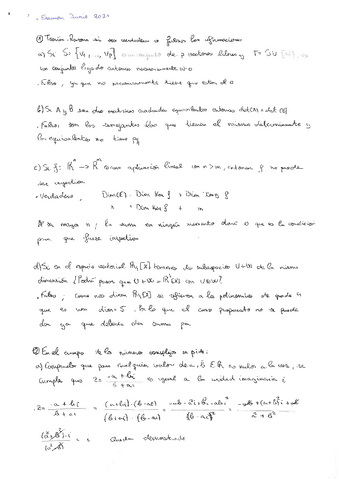 Examen Junio 2021
① Teoría. Razona si son verdaderas o falsas las afirmaciones
a) Si S = {v₁, ..., vₚ} es un conjunto de p vectores libres y T = S ∪ {w}, es
un conjunto ligado entonces necesariamente w=0
· Falso, ya que no necesariamente tiene que estar el 0
b) Si A y B son dos matrices cuadradas equivalentes entonces det(A) = det(B)
· Falso, son las semejantes las que tienen el mismo determinante y
las equivalentes no tiene pq
c) Si f: ℝⁿ → ℝᵐ es una aplicación lineal con n>m, entonces f no puede
ser inyectiva
· Verdadero, Dim(E) = Dim Ker f + Dim Img f
n = Dim Ker f + m
Al ser mayor n, la suma en ningún momento dará 0 que es la condición
para que fuese inyectiva
d) Si en el espacio vectorial ℙ₄[X] tenemos los subespacios U y W de la misma
dimensión ¿Podrá pasar que U+W = ℙ₄[X] con U⊕W?
· Falso, como nos dicen ℙ₄[X] se refieren a los polinomios de grado 4
que es una dim = 5. Por lo que el caso propuesto no se puede
dar ya que deberá dar suma par
② En el campo de los números complejos se pide:
a) Comprueba que para cualquier valor de a, b ∈ ℝ no nulos a la vez, se
cumple que z = (-a+bi)/(b+ai) es igual a la unidad imaginaria i
z = (-a+bi)/(b+ai) = (-a+bi)·(b-ai)/(b+ai)·(b-ai) = (-ab+a²i+b²i-abi²)/(b²-ai²) = (-ab+(a²+b²)i+ab)/(a²+b²)
(a²+b²)·i/(a²+b²) = i Queda demostrado